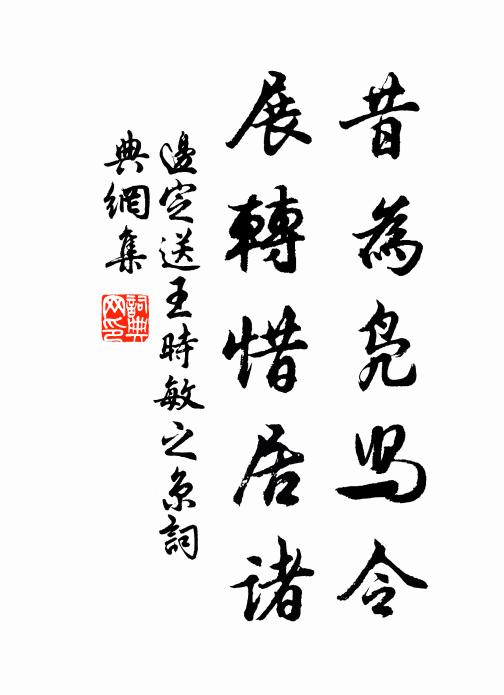 昔為鳧舄令
展轉惜居諸
邊定送王時敏之京詞
典網集
詞典
网印